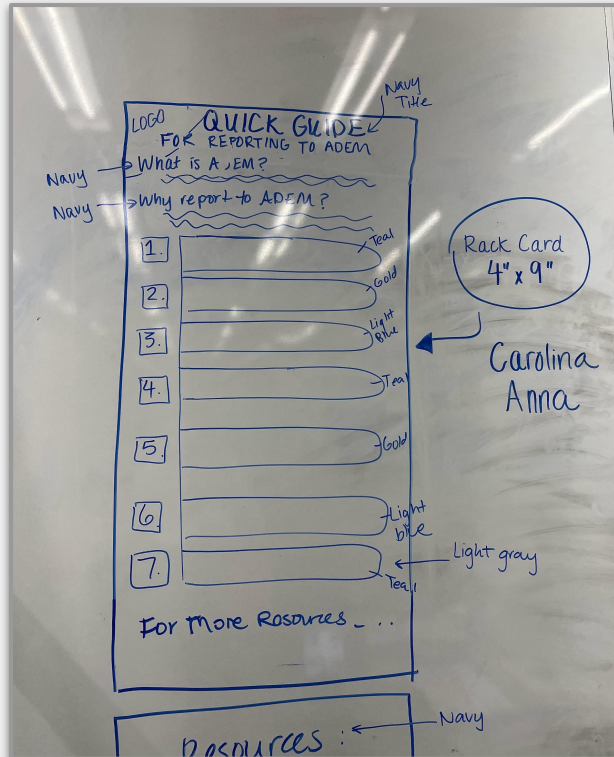 Navy
Title
LOGO
QUICK GUIDE
FOR REPORTING TO ADEM
Navy
What is A EM?
Navy
Why report to ADEM?
1.
Teal
2.
Gold
3.
Light
Blue
4.
Teal
5.
Gold
6.
Light
blue
7.
Light gray
Teal
For More Rosources - ...
Rack Card
4" x 9"
Carolina
Anna
Resources :
Navy